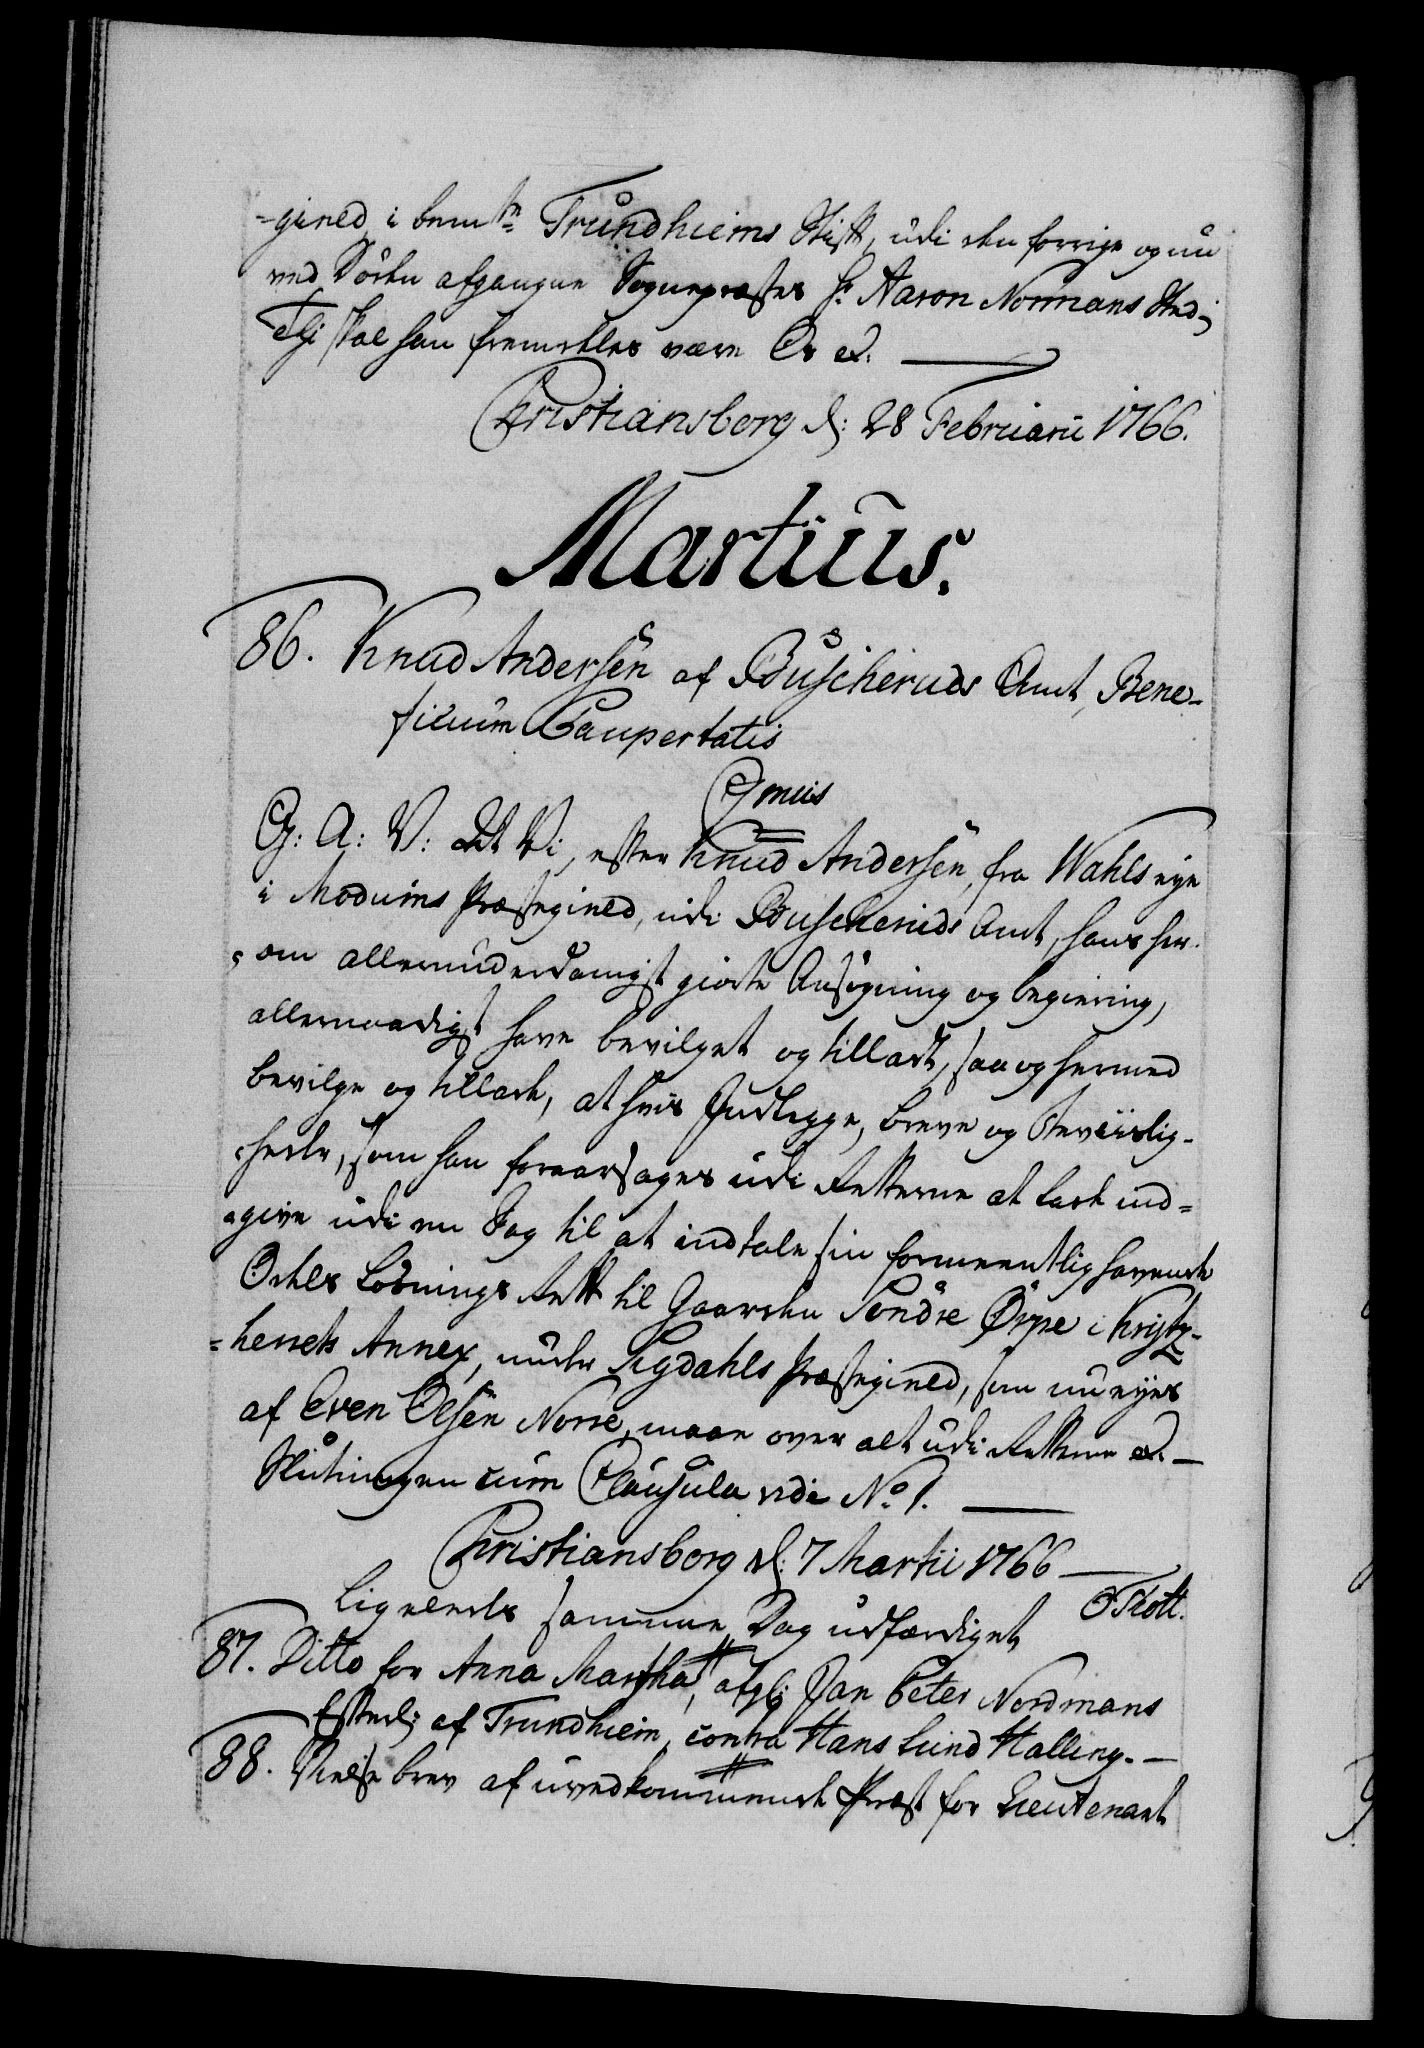 -gield i bem.te Trundhiems Stift, udi den forrige og nu
ved Døden afgangne Sognepræstes Hr Aaron Normans Sted;
Thi skal han fremdeles være Os &.
Christiansborg d: 28 Februarii 1766.
Martius.
86. Knud Andersen af Buscheruds Amt, Bene-
ficium Paupertatis
Gratis
G: A: V: At Vi, efter Knud Andersen, fra Wahls eye
i Modums Præstegield, udi Buscheruds Amt, hans her-
-om allerunderdanigst giorte Ansøgning og begiering,
allernaadigst have bevilget og tilladt, saa og hermed
bevilge og tillade, at hvis Indlegge, breve og Beviislig-
-heder, som han foraarsages udi Retterne at lade ind-
-give udi en Sag til at indtale sin formeentlig havende
Odels Løsnings Rett til Gaarden Søndre Øype i Kryds-
-herrets Annex, under Sigdahls Præstegield, som nu eyes
af Even Olsen Nore, maae over alt udi Retterne &.
Slutningen cum Clausula vide No. 1.
Christiansborg d: 7 Martii 1766
O Thott.
Ligeledes samme Dag udfærdiget
87. Ditto for Anna Martha, afg: Jan Peter Nordmans
Efterl: af Trundhiem, contra Hans Lund Halling.
88. Vielse brev af uvedkommende Præst for Lieutenant